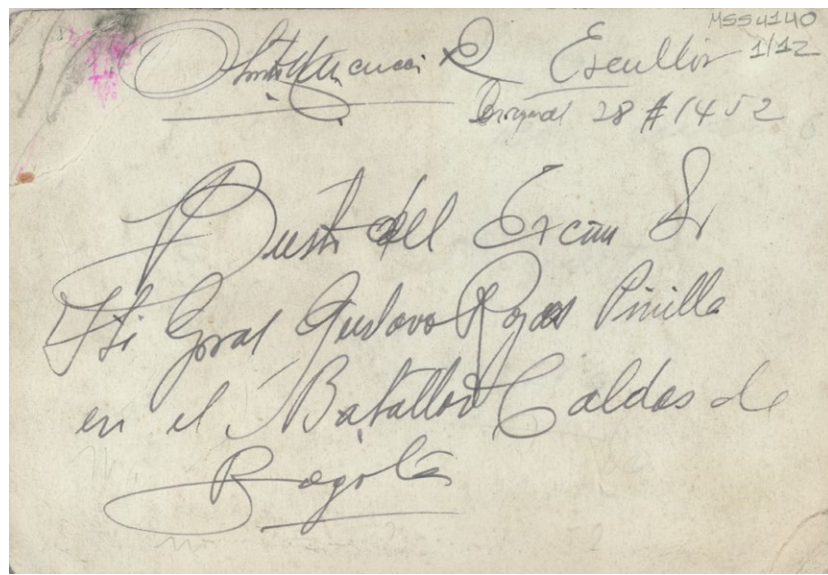 MSS4140
1/12
Escultor
28 # 1452
Busto del Excmo Sr
Gral Gustavo Rojas Pinilla
en el Batallon Caldas de
Bogotá